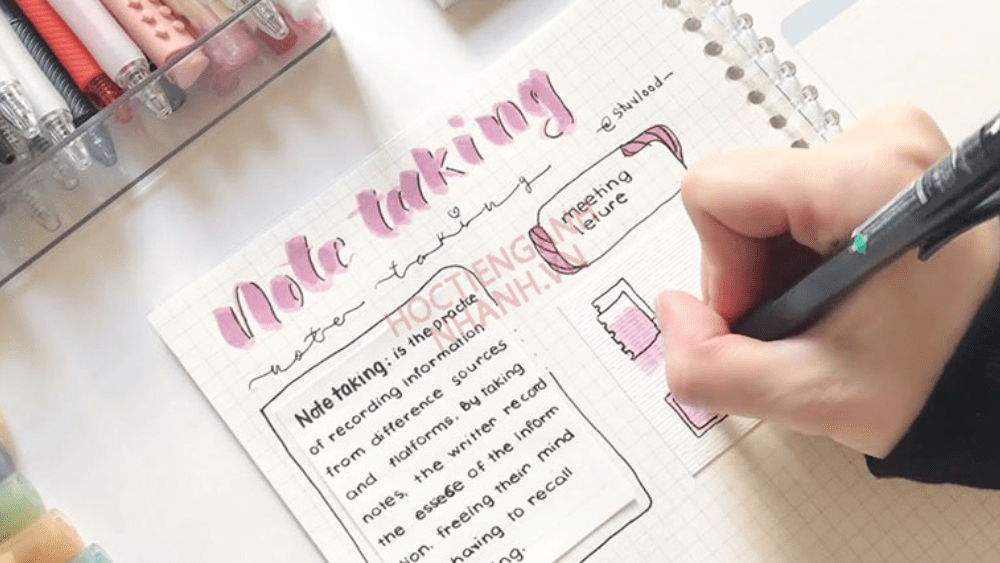 Note taking
@stuvlood
note taking
meeting
leture
HOCTIENGANH
NHANH.VN
Note taking: is the practe
of recording information
from difference sources
and flatforms. By taking
notes, the writer record
the essese of the inform
ion. freeing their mind
having to recall
ng.